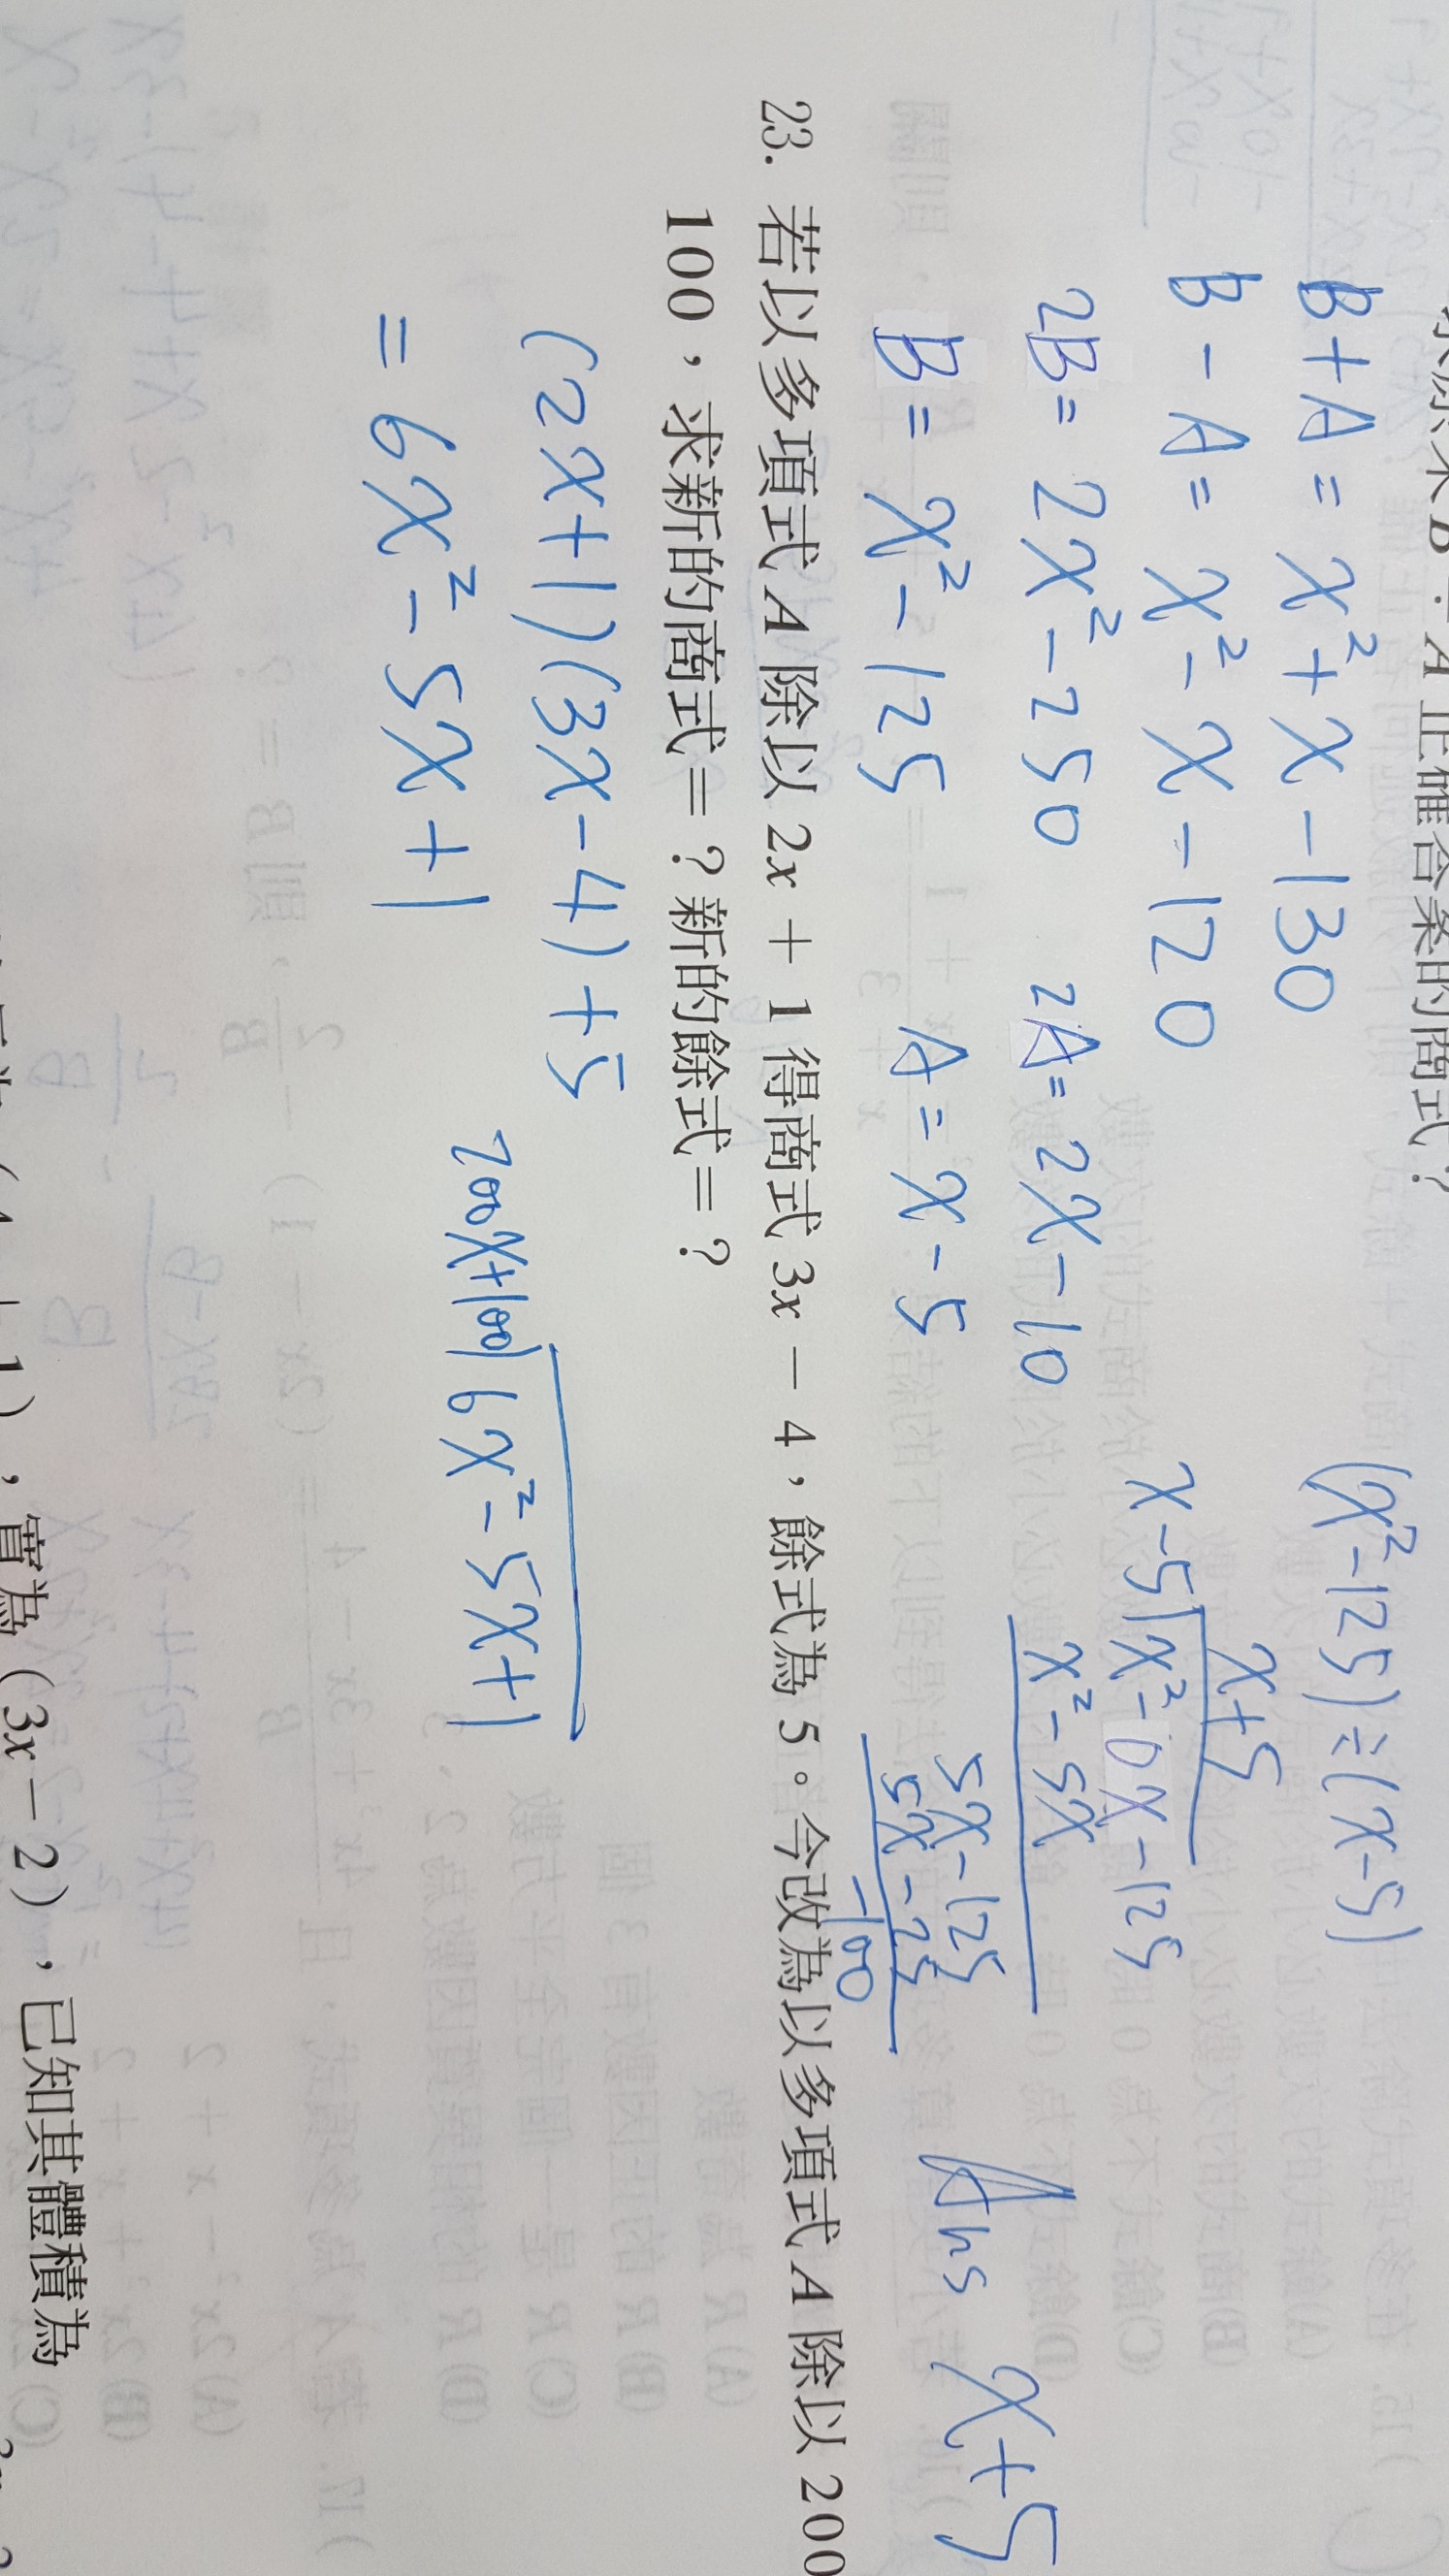 求原來 B ÷ A 正確答案的商式？
B + A = x² + x - 130
B - A = x² - x - 120
2B = 2x² - 250
2A = 2x - 10
B = x² - 125
A = x - 5
(x² - 125) ÷ (x - 5)
x + 5
x - 5 | x² - 0x - 125
x² - 5x
5x - 125
5x - 25
-100
Ans x + 5
23. 若以多項式 A 除以 2x + 1 得商式 3x − 4，餘式為 5。今改為以多項式 A 除以 200
100，求新的商式＝？新的餘式＝？
(2x + 1)(3x - 4) + 5
= 6x² - 5x + 1
200x+100 | 6x² - 5x + 1
，寬為（3x − 2），已知其體積為